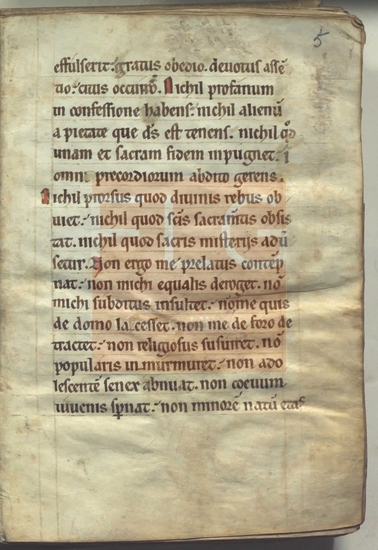 5
effulserit. gratus obedio. devotus assē
tio. citus occurrō. Nichil profanum
in confessione habens. nichil alienū
a pietate que d̄s est tenens. nichil q̄d
unam et sacram fidem inpugnet. ī
omni precordiorum abdito gerens.
Nichil prorsus quod divinis rebus ob
viet. nichil quod sc̄is sacram̄tis obsis
tat. nichil quod sacris misterijs adū
setur. Non ergo me prelatus contēp
nat. non michi equalis deroget. nō
michi subditus insultet. nō me quis
de domo lacesset. non me de foro de
tractet. non religiosus susurret. nō
popularis inmurmuret. non ado
lescentē senex abnuat. non coevum
iuvenis sp̄nat. non minorē natū etas